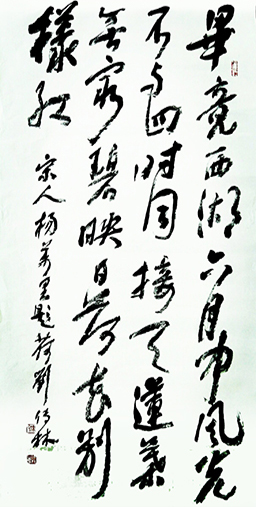 畢竟西湖六月中風光
不与四时同接天蓮葉
無窮碧映日荷花别
樣紅
宋人杨萬里題荷劉林